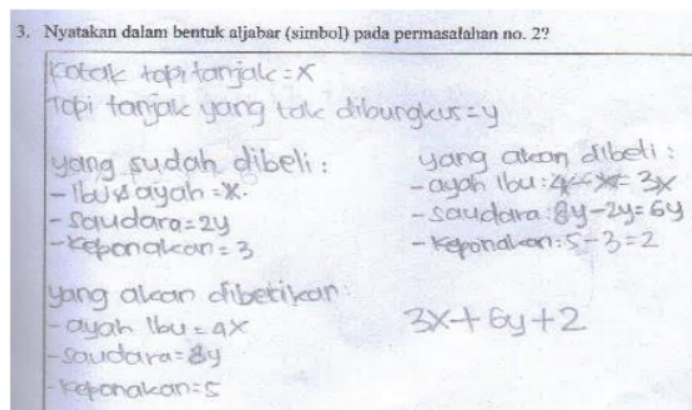 3. Nyatakan dalam bentuk aljabar (simbol) pada permasalahan no. 2?
Kotak topi tanjak = x
Topi tanjak yang tak dibungkus = y
yang sudah dibeli :
- Ibu ayah = x.
- Saudara = 2y
- keponakan = 3
yang akan dibeli :
- ayah ibu : 4x - x = 3x
- saudara : 8y - 2y = 6y
- keponakan : 5 - 3 = 2
yang akan diberikan :
- ayah ibu = 4x
- saudara = 8y
- keponakan = 5
3x + 6y + 2